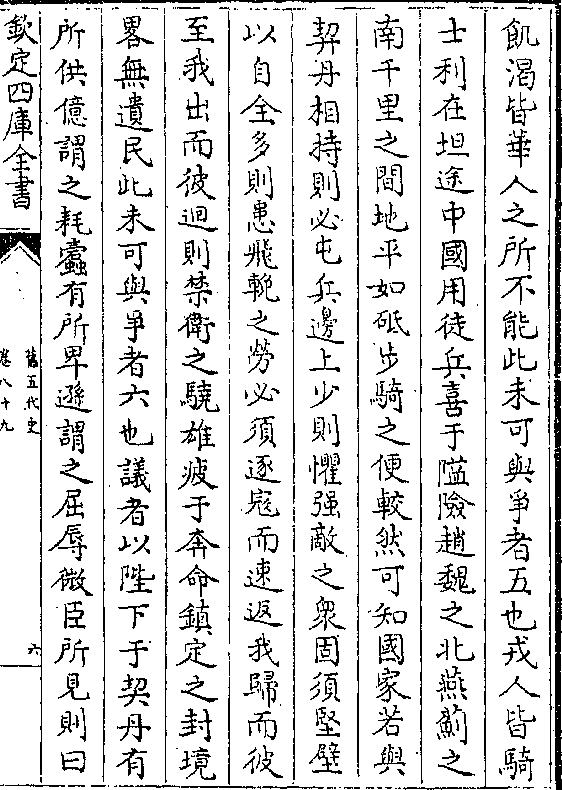 飢渴皆華人之所不能此未可與爭者五也戎人皆騎
士利在坦途中國用徒兵喜于隘險趙魏之北燕薊之
南千里之間地平如砥步騎之便較然可知國家若與
契丹相持則必屯兵邊上少則懼强敵之衆固須堅壁
以自全多則患飛輓之勞必須逐寇而速返我歸而彼
至我出而彼迴則禁衛之驍雄疲于奔命鎮定之封境
畧無遺民此未可與爭者六也議者以陛下于契丹有
所供億謂之耗蠹有所卑遜謂之屈辱微臣所見則曰
欽定四庫全書
舊五代史
卷八十九
六